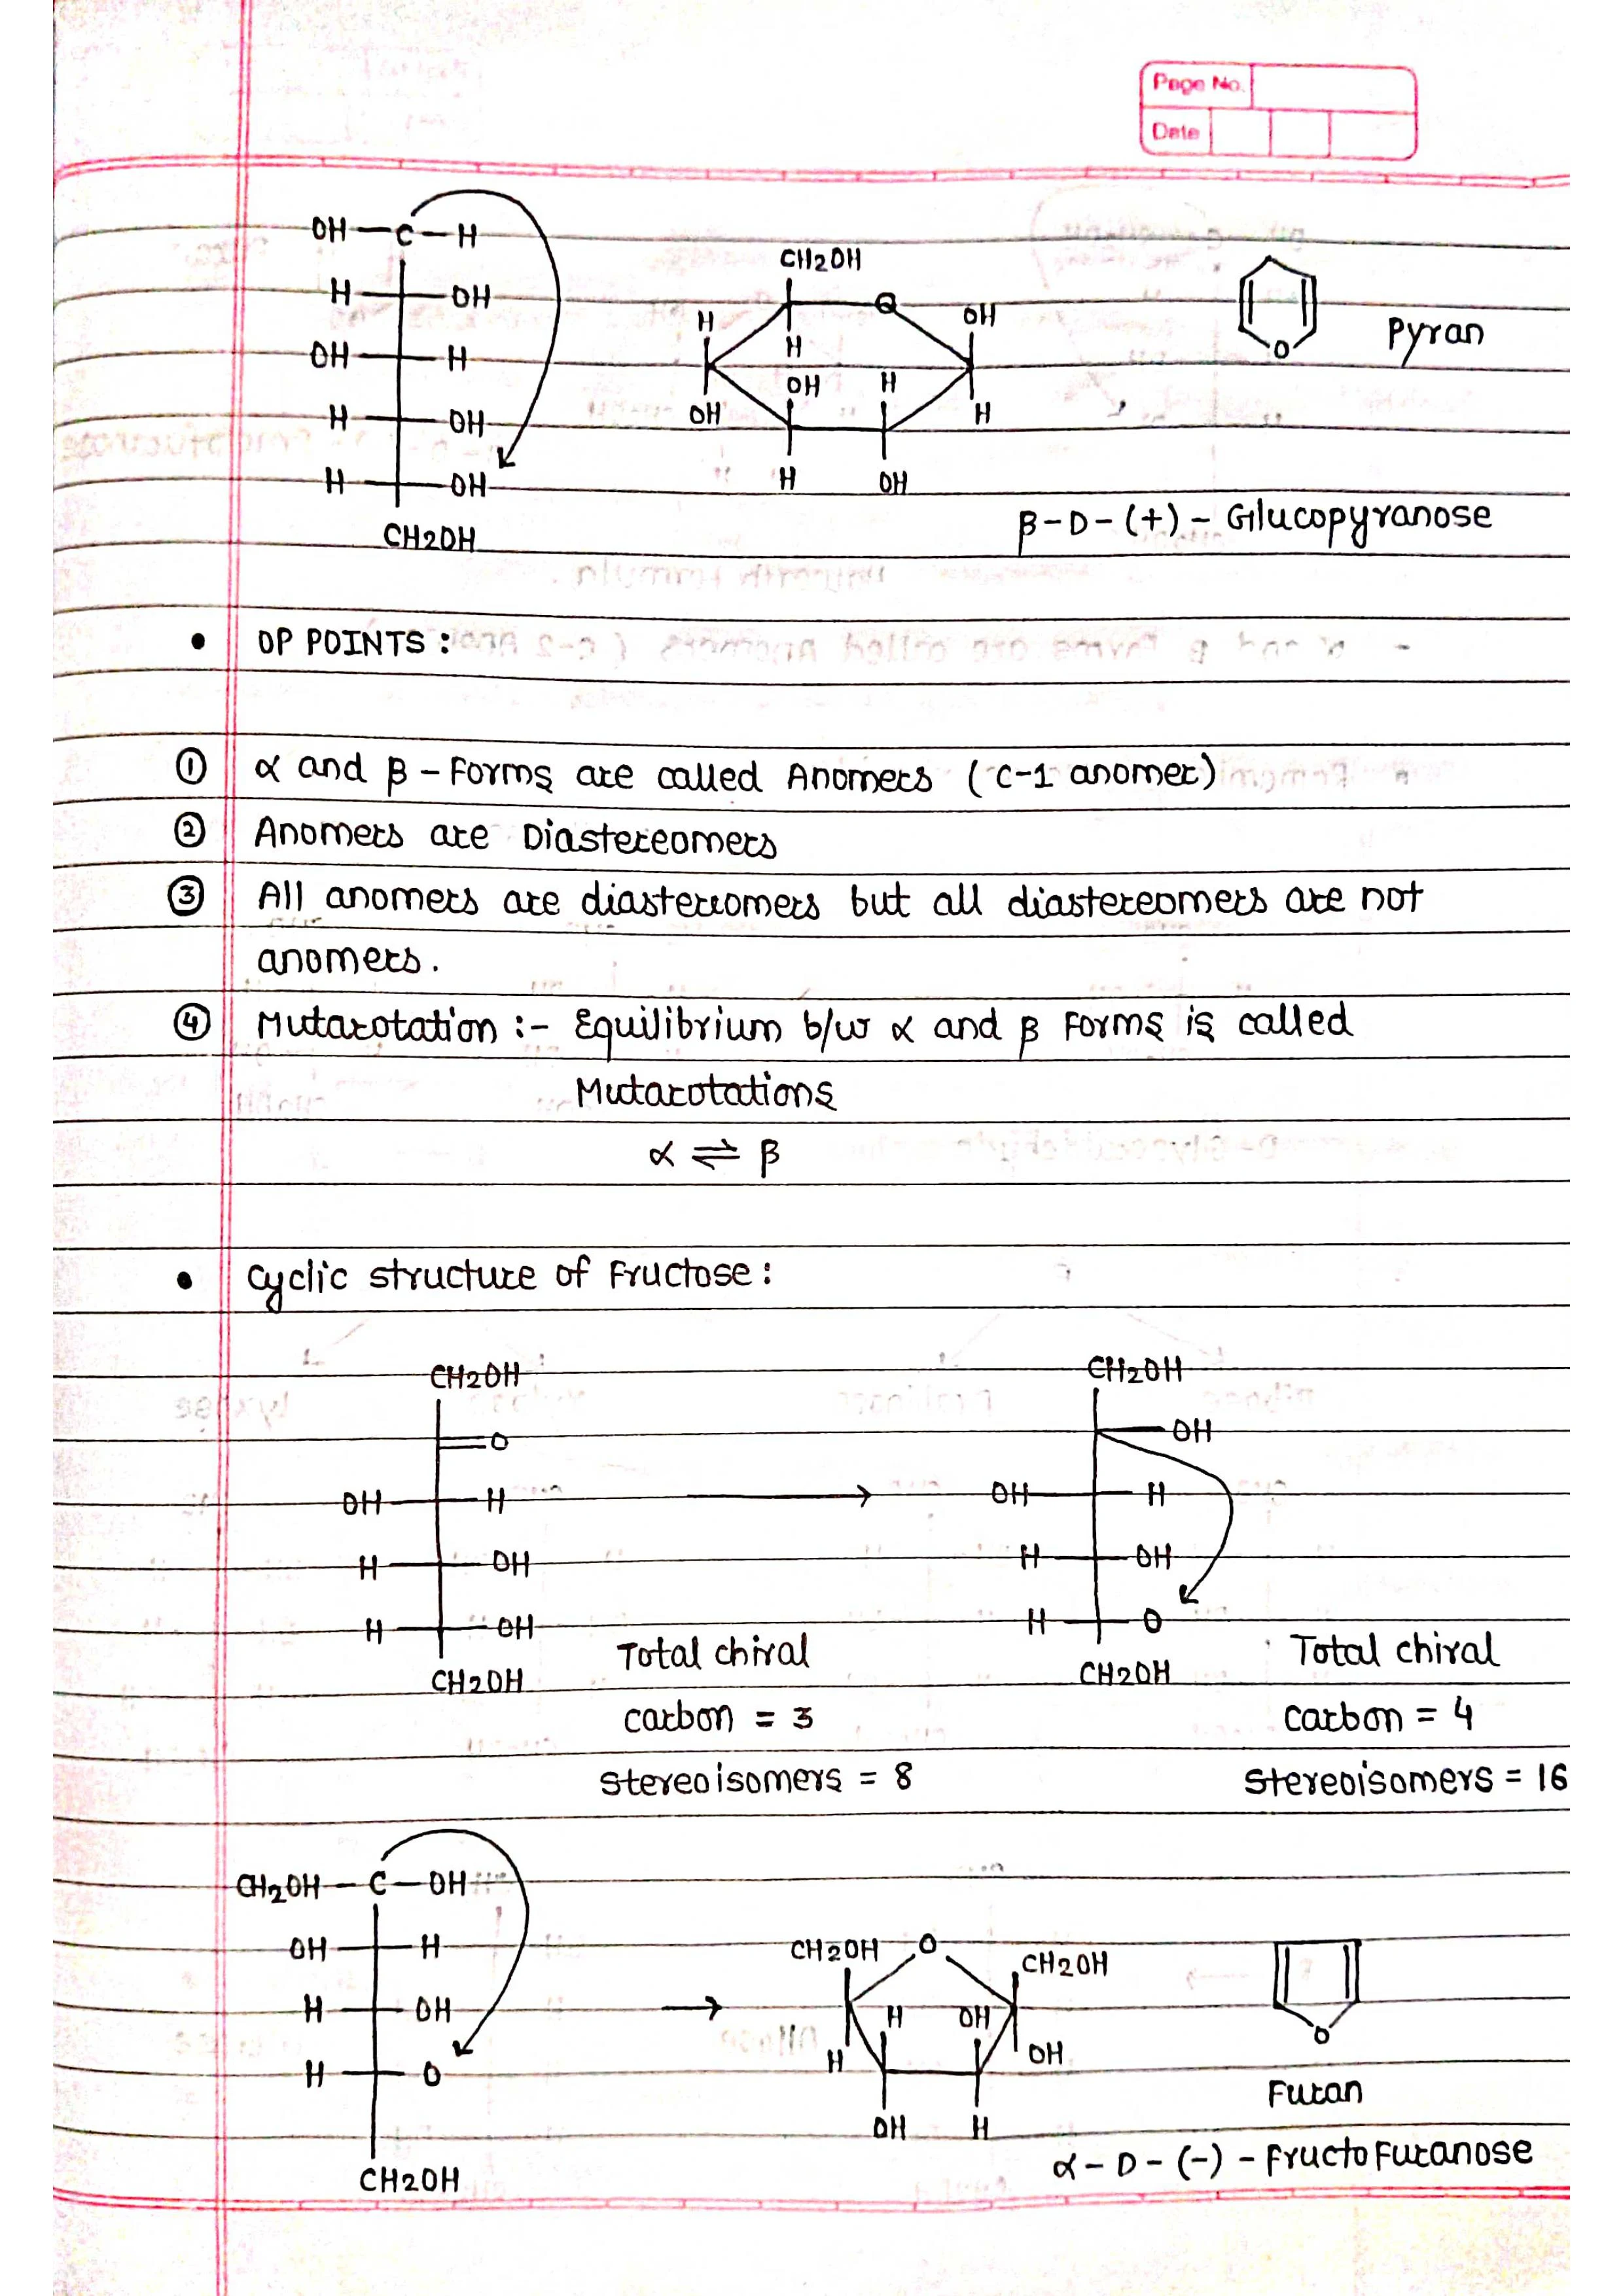 Page No.
Date
OH—C—H
H OH
OH H
H OH
H OH
CH2OH
CH2OH
O
H OH
H
OH H
OH H
H OH
O
Pyran
β-D-(+)-Glucopyranose
• OP POINTS :
① α and β-Forms are called Anomers (C-1 anomer)
② Anomers are Diastereomers
③ All anomers are diastereomers but all diastereomers are not
anomers.
④ Mutarotation :- Equilibrium b/w α and β Forms is called
Mutarotations
α ⇌ β
• Cyclic structure of Fructose :
CH2OH
=O
OH H
H OH
H OH
CH2OH
Total chiral
carbon = 3
stereoisomers = 8
CH2OH
OH
OH H
H OH
H O
CH2OH
Total chiral
carbon = 4
stereoisomers = 16
CH2OH—C—OH
OH H
H OH
H O
CH2OH
CH2OH O CH2OH
H OH
H OH
OH H
O
Furan
α-D-(-)-Fructofuranose